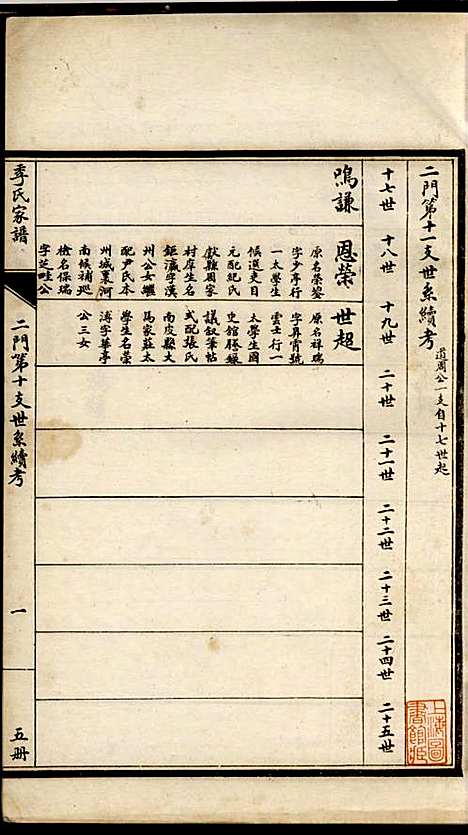 二門第十一支世系續考 道周公一支自十七世起
十七世 十八世 十九世 二十世 二十一世 二十二世 二十三世 二十四世 二十五世
鳴謙
恩榮
原名榮鏊
字少亭行
一太學生
候選吏目
元配紀氏
獻縣周家
村庠生名
鉅瀛字漢
州公女繼
配尹氏本
州城裏河
南候補巡
檢名保瑞
字芝畦公
世超
原名祥瑞
字昇霄號
雲士行一
太學生國
史館謄錄
議叙筆帖
式配張氏
南皮縣大
馬家莊太
學生名榮
溥字華亭
公三女
季氏家譜
二門第十支世系續考
一
五冊
上海圖書館藏